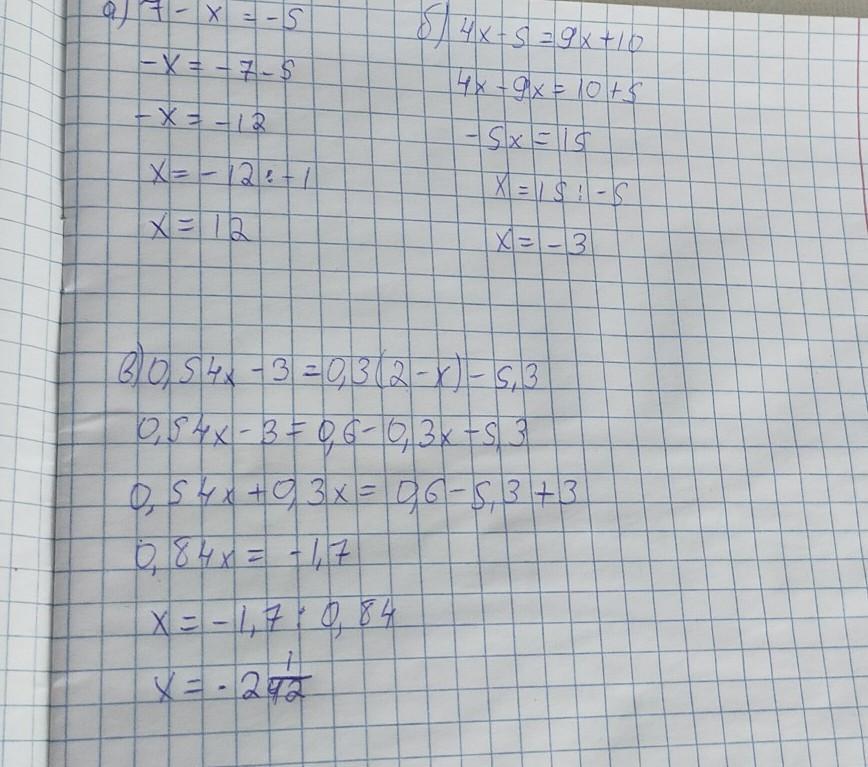 а) 7 - x = -5
-x = -7-5
-x = -12
x = -12 : -1
x = 12
б) 4x-5 = 9x+10
4x-9x = 10+5
-5x = 15
x = 15 : -5
x = -3
в) 0,54x - 3 = 0,3(2-x) - 5,3
0,54x - 3 = 0,6 - 0,3x - 5,3
0,54x + 0,3x = 0,6 - 5,3 + 3
0,84x = -1,7
x = -1,7 : 0,84
x = -2 1/42